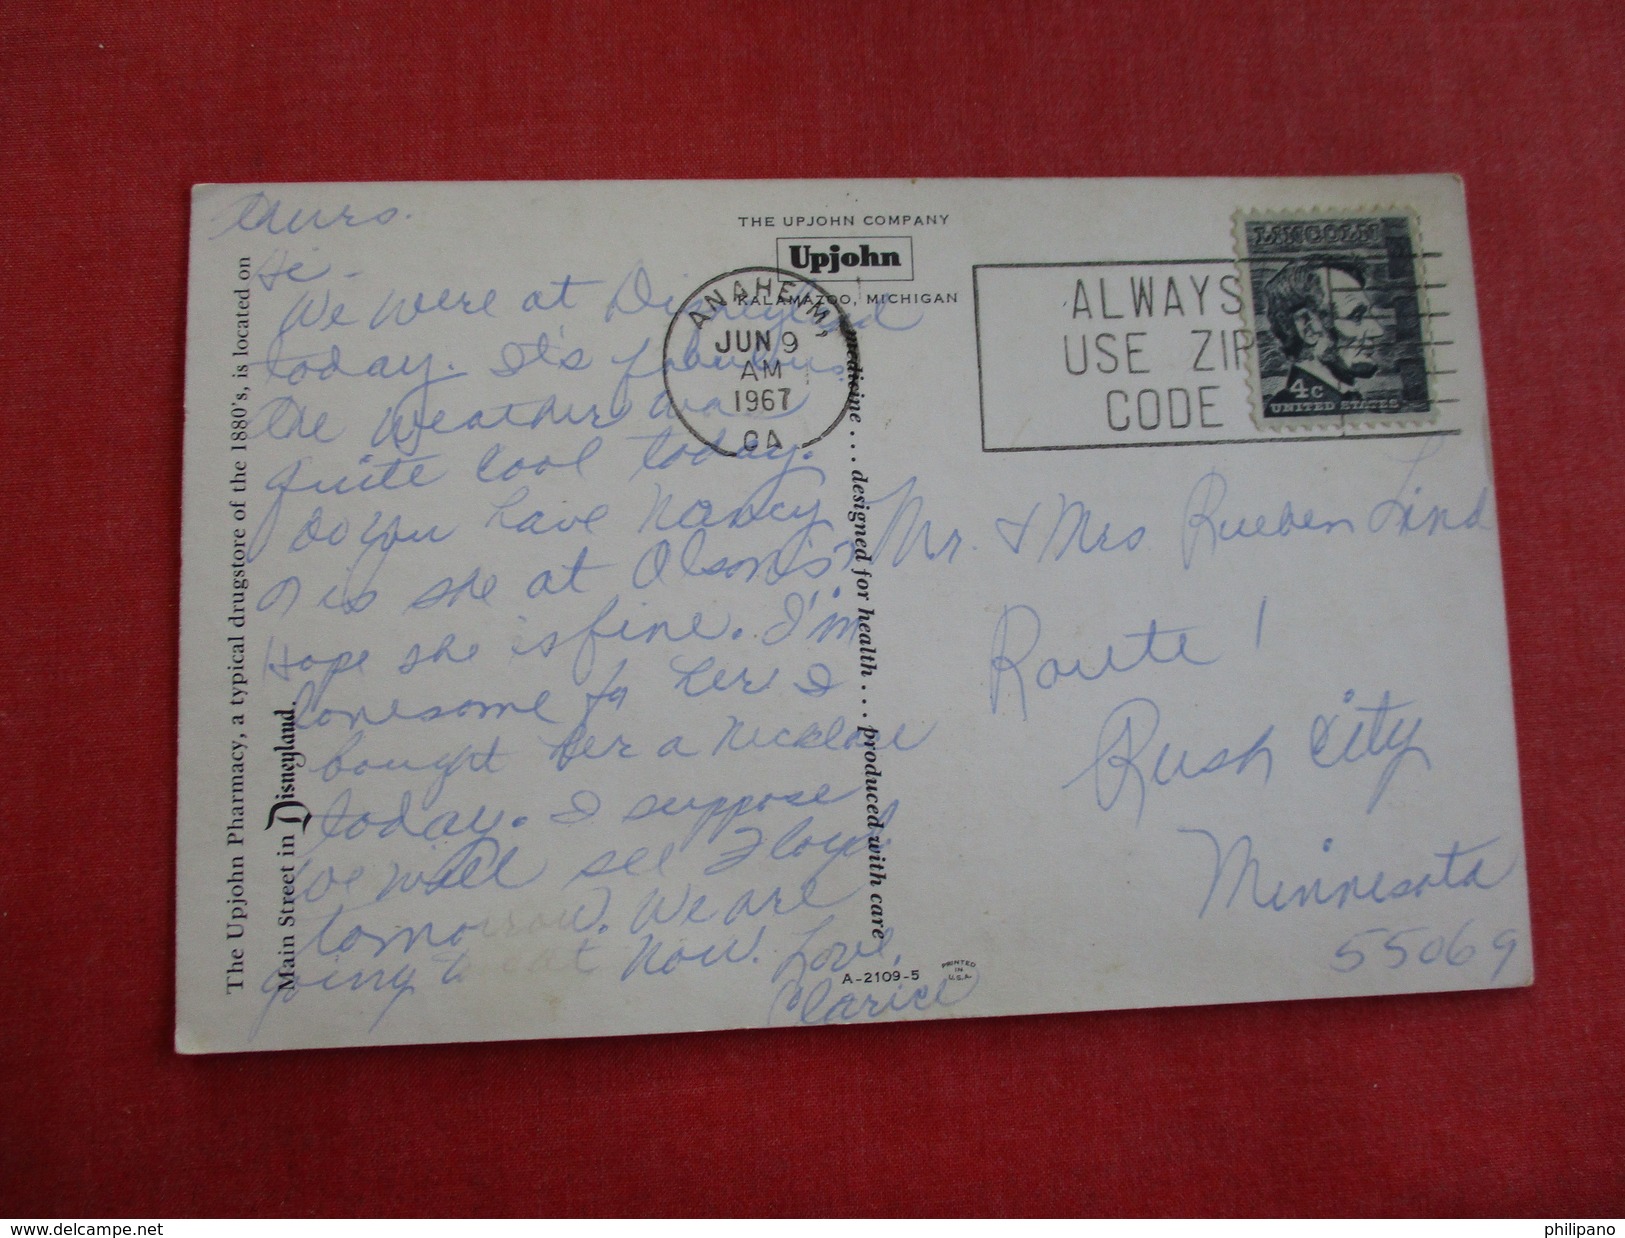 Thurs.
Hi -
We were at Disneyland
today. It's fabulous.
The weather was
quite cool today.
Do you have Nancy
or is she at Olson's?
Hope she is fine. I'm
lonesome for her. I
bought her a necklace
today. I suppose
we will see Floyd
tomorrow. We are
going to eat now. Love,
Clarice
The Upjohn Pharmacy, a typical drugstore of the 1880's, is located on
Main Street in Disneyland.
THE UPJOHN COMPANY
Upjohn
KALAMAZOO, MICHIGAN
medicine . . . designed for health . . . produced with care
A-2109-5
PRINTED
IN
U.S.A.
ANAHEIM,
JUN 9
AM
1967
CA
ALWAYS
USE ZIP
CODE
LINCOLN
4c
UNITED STATES
Mr. & Mrs Rueben Lind
Route 1
Rush City
Minnesota
55069
delcampe.net
philipano